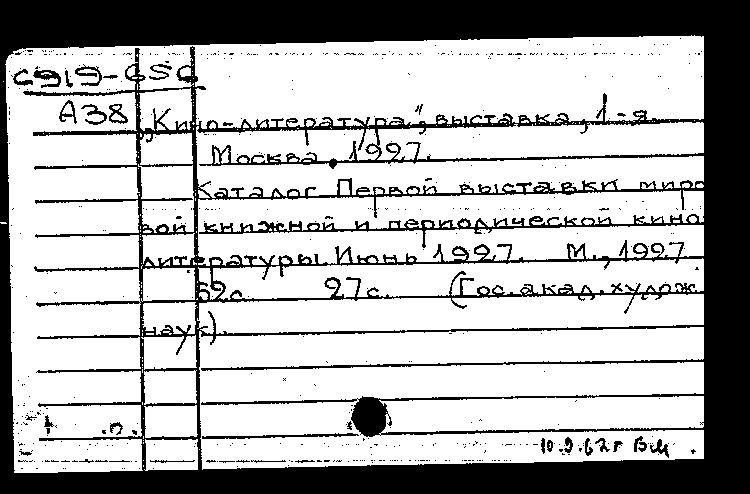 С919-656
А38
„Кино-литература", выставка, 1-я.
Москва. 1927.
Каталог Первой выставки миро
вой книжной и периодической кино
литературы. Июнь 1927. М., 1927
62с. 27с. (Гос. акад. худож.
наук).
10.9.62г